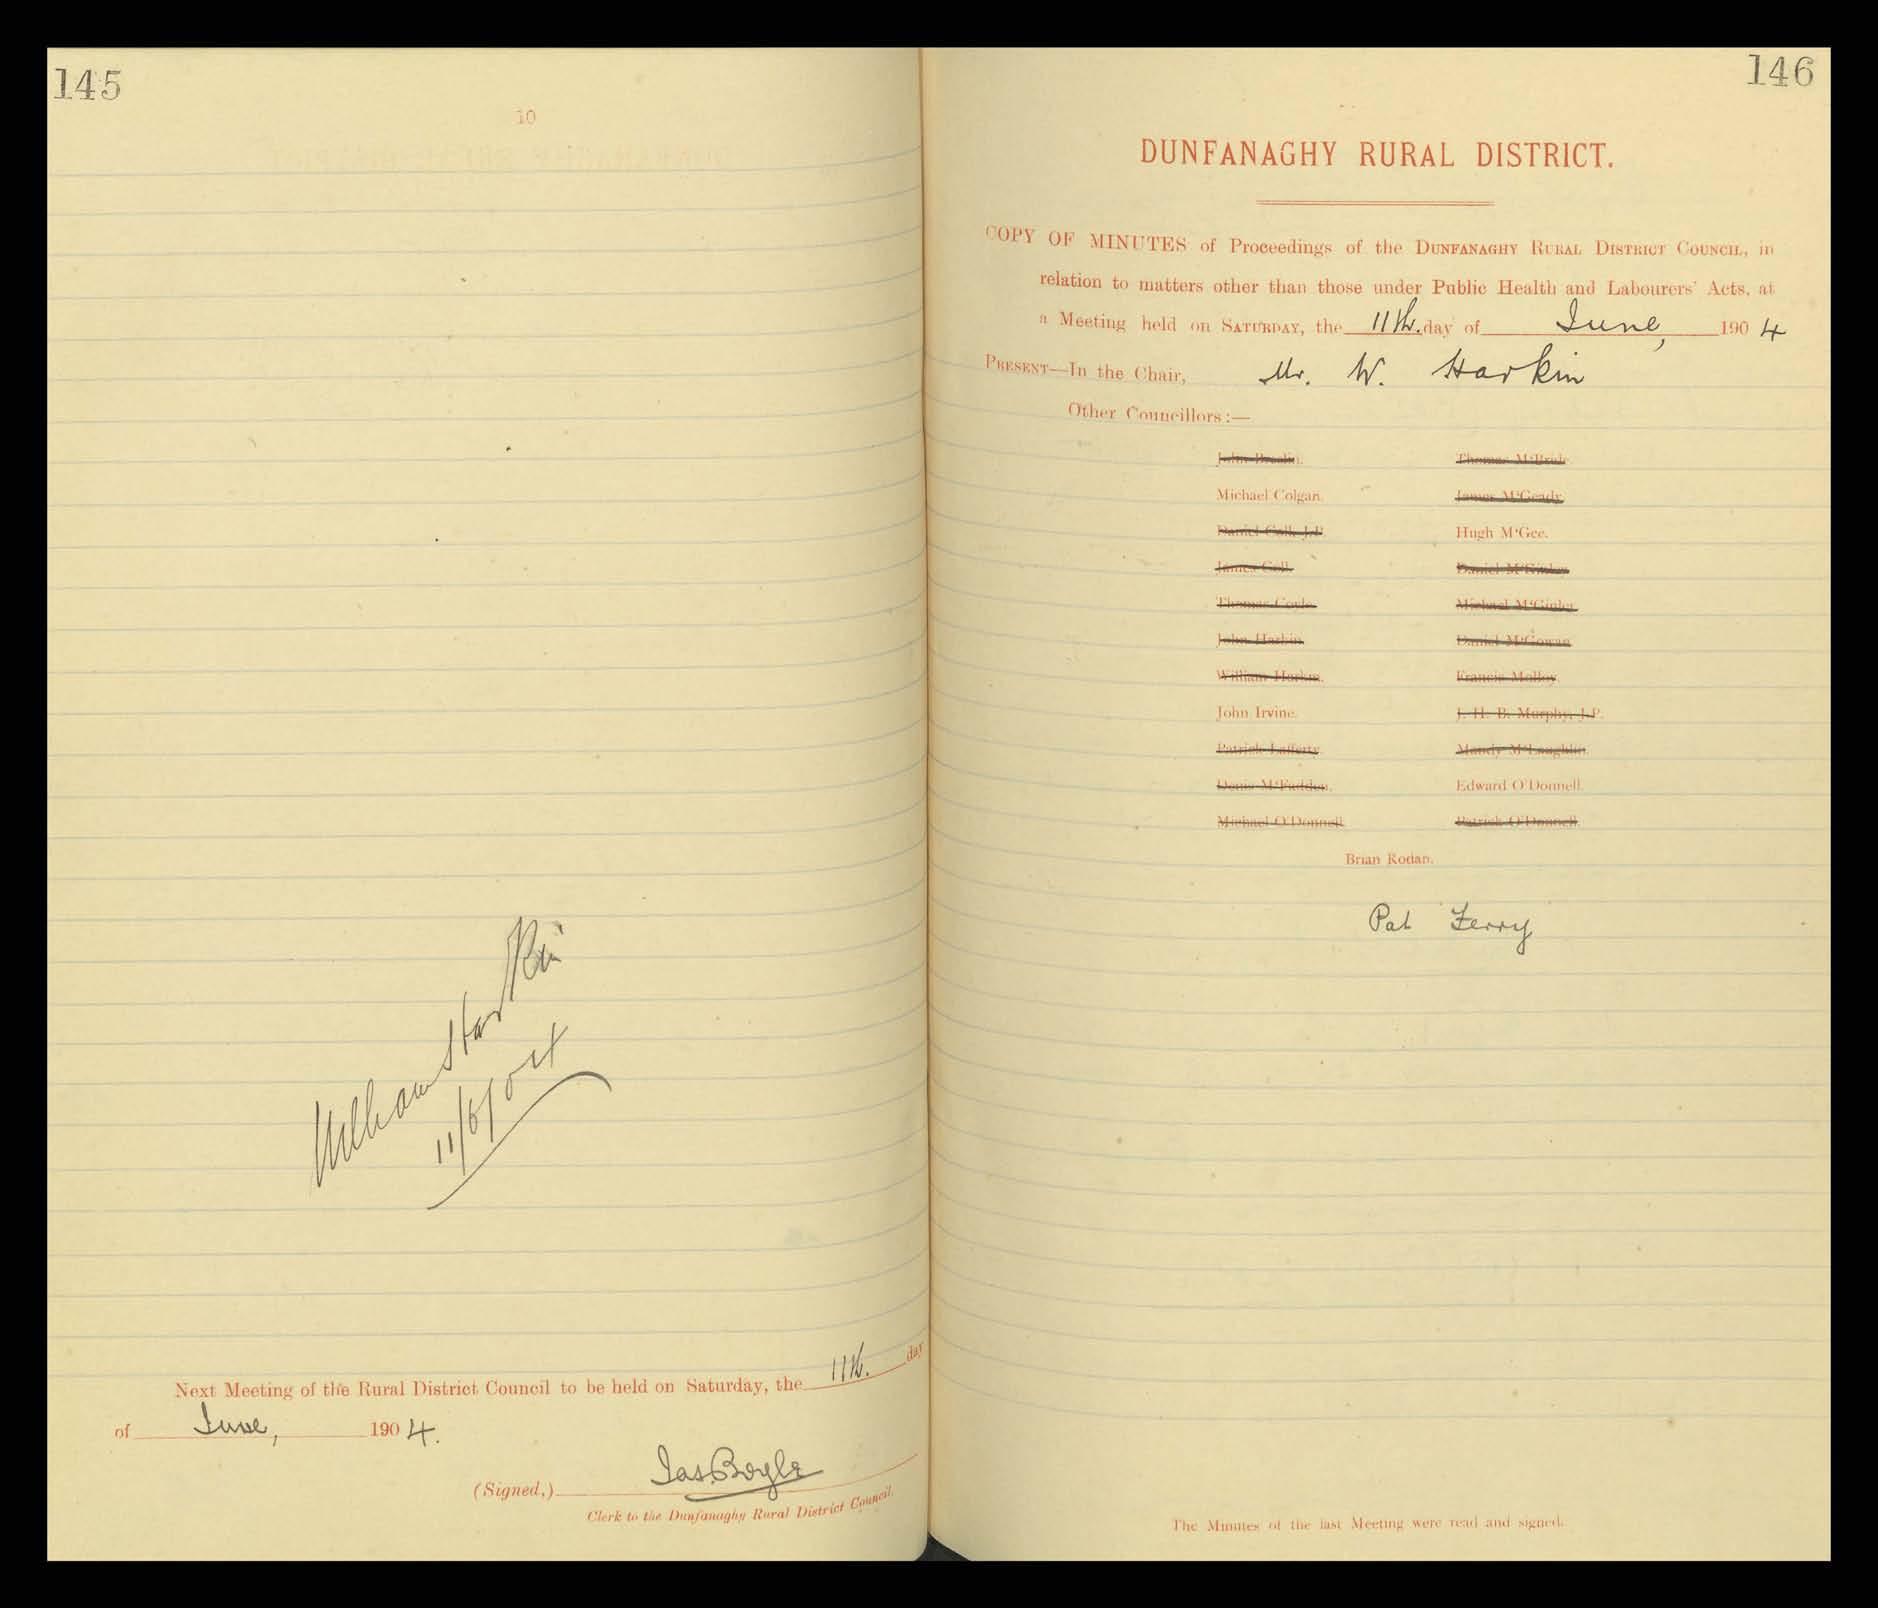 145
10
William Harkin
11/6/04
Next Meeting of the Rural District Council to be held on Saturday, the 11th. day
of June, 1904.
(Signed,) Jas. Boyle
Clerk to the Dunfanaghy Rural District Council.
146
DUNFANAGHY RURAL DISTRICT.
COPY OF MINUTES of Proceedings of the DUNFANAGHY RURAL DISTRICT COUNCIL, in
relation to matters other than those under Public Health and Labourers' Acts, at
a Meeting held on SATURDAY, the 11th. day of June, 1904
PRESENT—In the Chair, Mr. W. Harkin
Other Councillors:—
John Breslin. Thomas M'Bride.
Michael Colgan. James M'Geady.
Daniel Coll, J.P. Hugh M'Gee.
James Coll. Daniel
Thomas Coyle. Michael M'Ginley.
John Harkin. Daniel M'Gowan.
William Harkin. Francis Molloy.
John Irvine. J. H. B. Murphy, J.P.
Patrick Lafferty. Mandy M'Laughlin.
Denis M'Fadden. Edward O'Donnell.
Michael O'Donnell. Patrick O'Donnell.
Brian Rodan.
Pat Ferry
The Minutes of the last Meeting were read and signed.